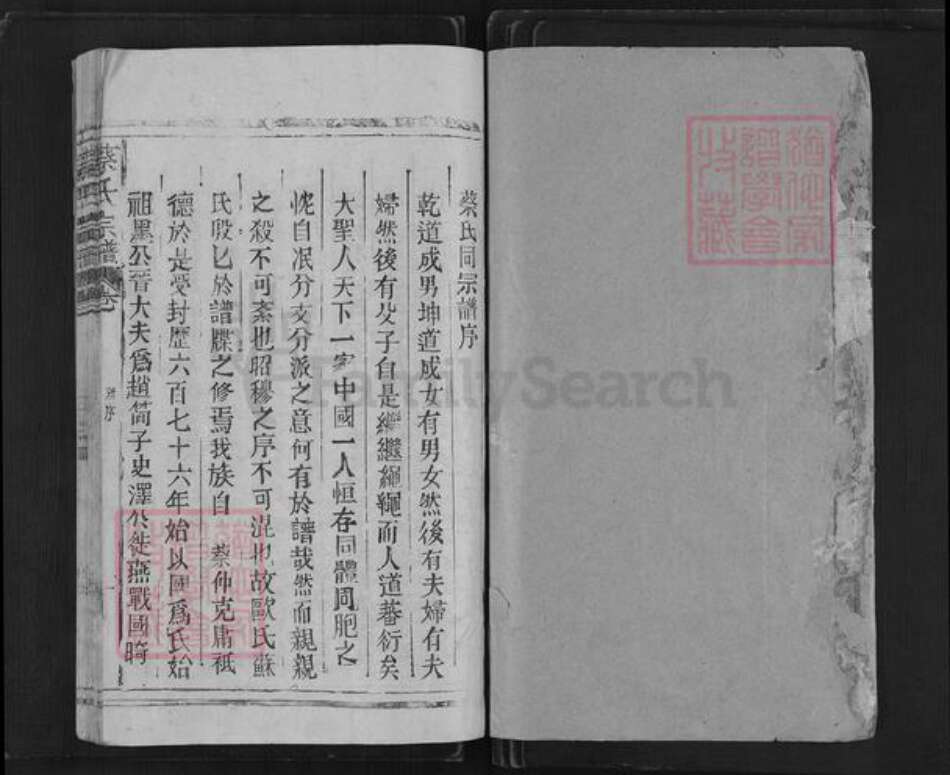 蔡氏同宗譜序
乾道成男坤道成女有男女然後有夫婦有夫
婦然後有父子自是繼繼繩繩而人道蕃衍矣
大聖人天下一家中國一人恒存同體同胞之
恍自泯分支分派之意何有於譜哉然而親親
之殺不可紊也昭穆之序不可混也故歐氏蘇
氏殷匕於譜牒之修焉我族自 蔡仲克庸祗
德於是受封歷六百七十六年始以國為氏始
祖墨公晉大夫為趙簡子史澤公徙燕戰國時
蔡氏宗譜 卷
序
猶他家
譜學會
特藏
FamilySearch